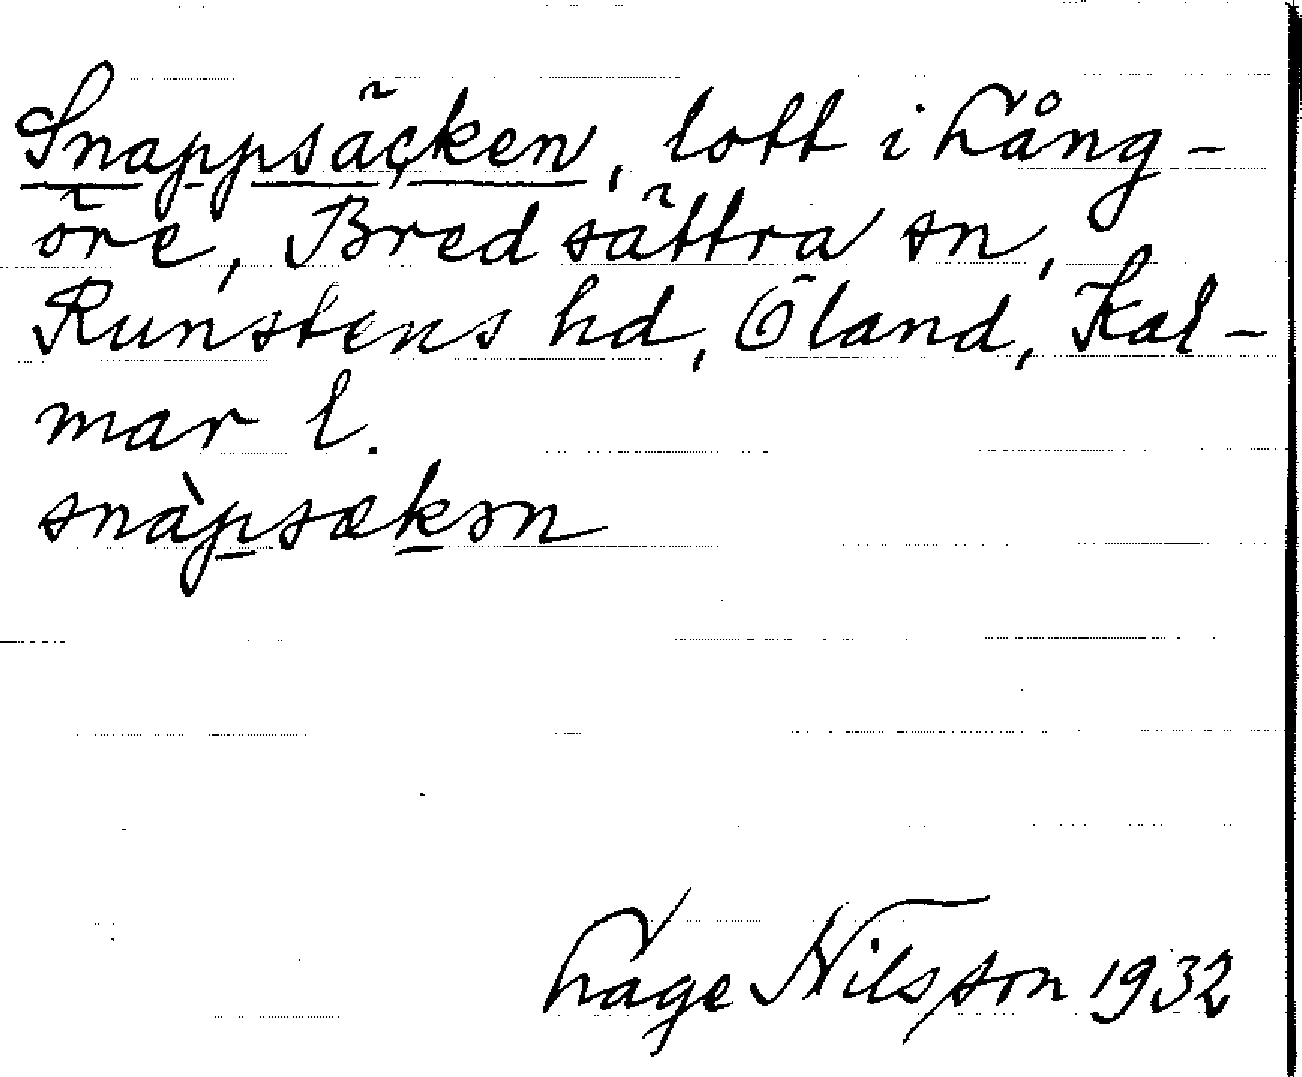 Snappsäcken, lott i Lång-
öre, Bredsättra sn,
Runstens hd, Öland, Kal-
mar l.
snàpsækən
Lage Nilsson 1932